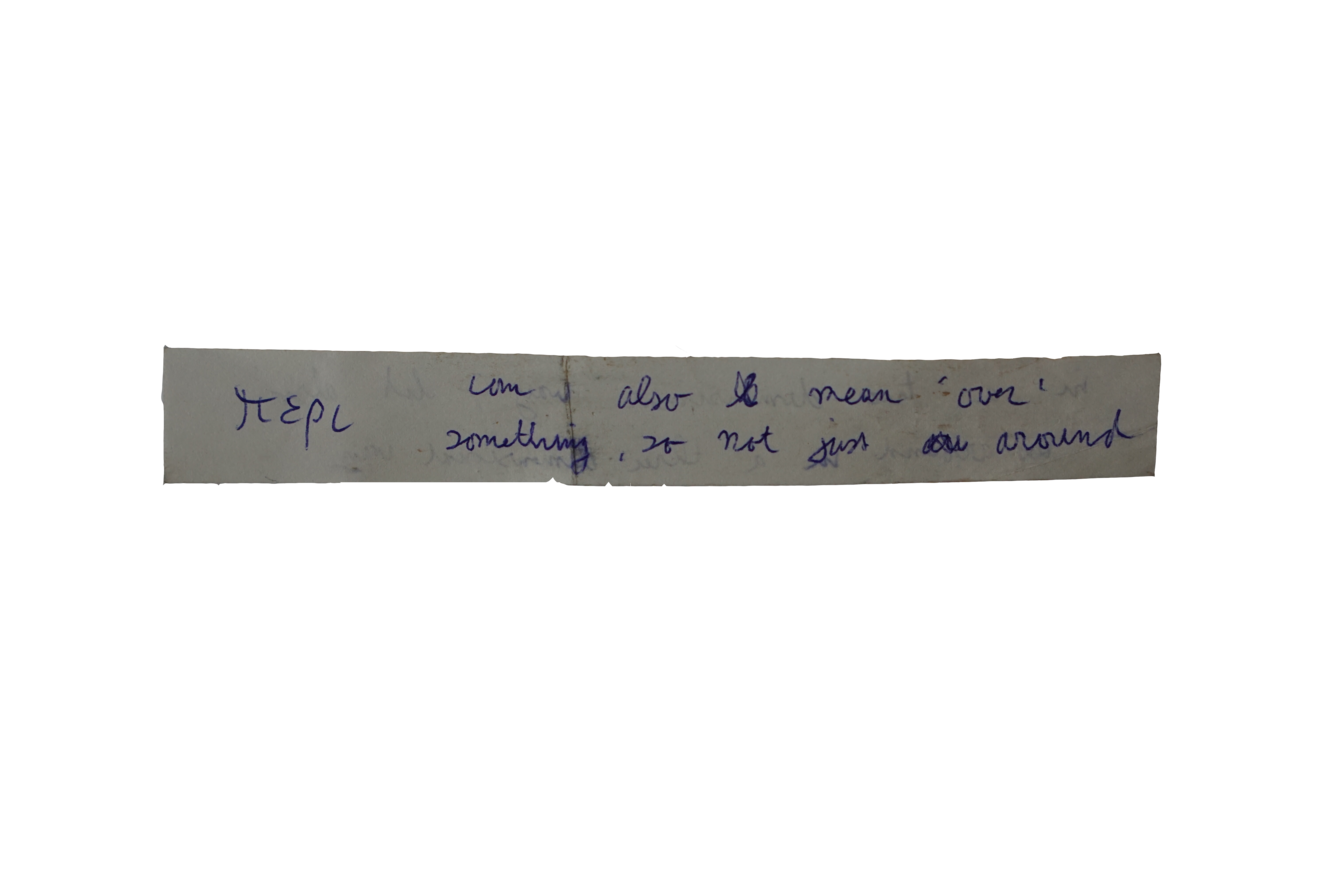 περι can also mean 'over'
something, so not just around